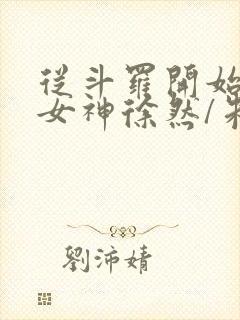 從斗羅開始
女神徐然/朱
劉沛婧